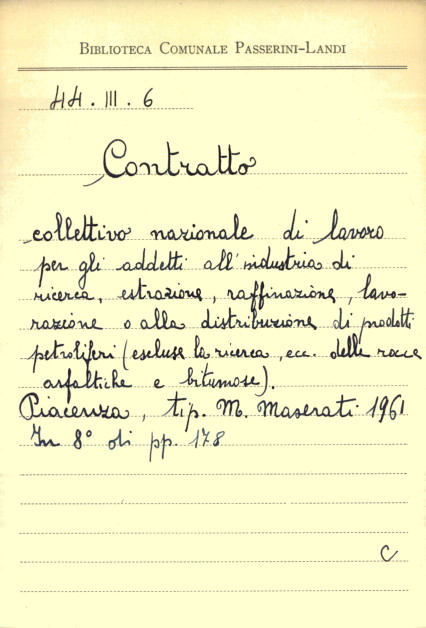 BIBLIOTECA COMUNALE PASSERINI-LANDI
44. III. 6
Contratto
collettivo nazionale di lavoro
per gli addetti all'industria di
ricerca, estrazione, raffinazione, lavo-
razione o alla distribuzione di prodotti
petroliferi (escluse la ricerca, ecc. delle rocce
asfaltiche e bitumose).
Piacenza, tip. M. Maserati 1961
In 8° di pp. 178
C